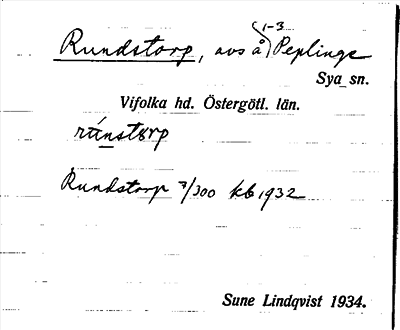 Rundstorp, avs å Peplinge 1-3
Sya sn.
Vifolka hd. Östergötl. län.
rúnstørp
Rundstorp 7/300 kb 1932
Sune Lindqvist 1934.